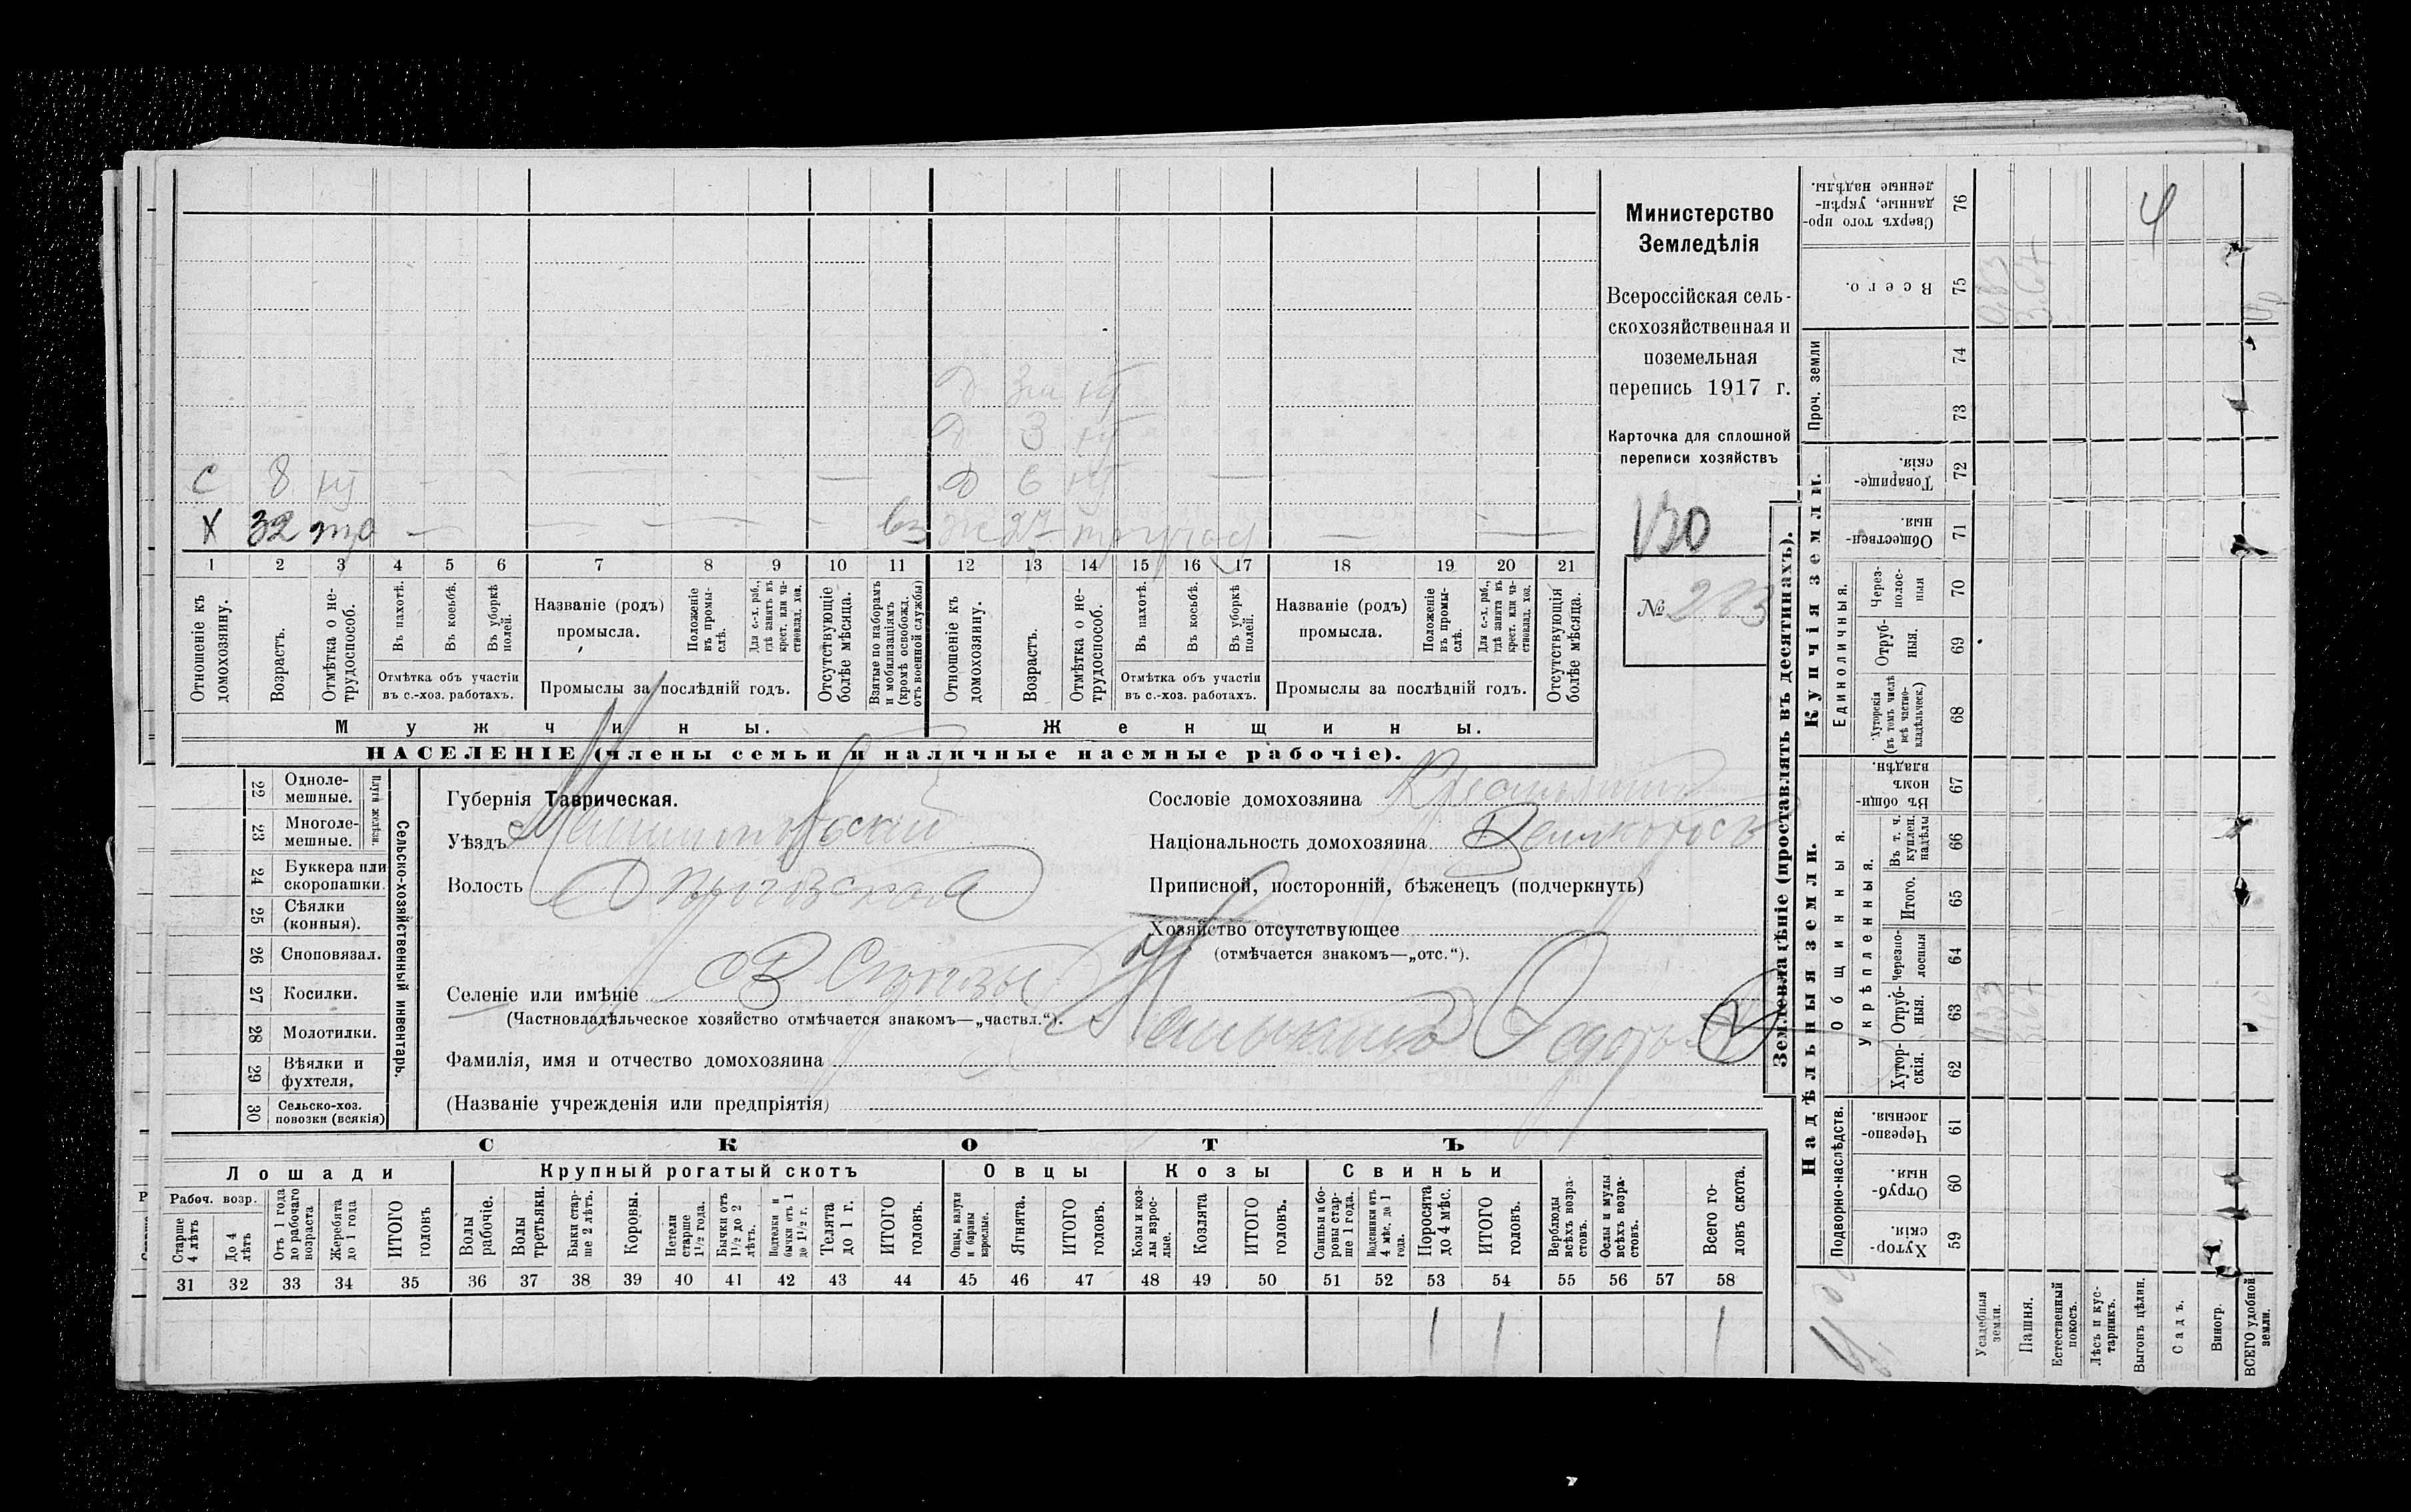 С 8 ну
Х 32 тр — вз
Д 3м ну
Д 3 ну
Д 6 ну
ж 27
1 2 3 4 5 6 7 8 9 10 11 12 13 14 15 16 17 18 19 20 21
Отношеніе къ домохозяину.
Возрастъ.
Отмѣтка о не-
трудоспособ.
Въ пахотѣ.
Въ косьбѣ.
Въ уборкѣ
полей.
Отмѣтка объ участіи
въ с.-хоз. работахъ.
Названіе (родъ)
промысла.
Положеніе
въ промы-
слѣ.
Для с.-х. раб.,
гдѣ занятъ въ
крест. или ча-
стновлад. хоз.
Промыслы за послѣдній годъ.
Отсутствующіе
болѣе мѣсяца.
Взятые по наборамъ
и мобилизаціямъ
(кромѣ освобожд.
отъ военной службы)
Отношеніе къ
домохозяину.
Возрастъ.
Отмѣтка о не-
трудоспособ.
Въ пахотѣ.
Въ косьбѣ.
Въ уборкѣ
полей.
Отмѣтка объ участіи
въ с.-хоз. работахъ.
Названіе (родъ)
промысла.
Положеніе
въ промы-
слѣ.
Для с.-х. раб.,
гдѣ занята въ
крест. или ча-
стновлад. хоз.
Промыслы за послѣдній годъ.
Отсутствующія
болѣе мѣсяца.
Мужчины. Женщины.
НАСЕЛЕНІЕ (члены семьи и наличные наемные рабочіе).
Министерство
Земледѣлія
Всероссійская сель-
скохозяйственная и
поземельная
перепись 1917 г.
Карточка для сплошной
переписи хозяйствъ
130
№ 223
22 Одноле-
мешные.
23 Многоле-
мешные.
Плуги желѣзн.
24 Буккера или
скоропашки.
25 Сѣялки
(конныя).
26 Сноповязал.
27 Косилки.
28 Молотилки.
29 Вѣялки и
фухтеля.
30 Сельско-хоз.
повозки (всякія)
Сельско-хозяйственный инвентарь.
Губернія Таврическая.
Уѣздъ Мелитопольскій
Волость
Селеніе или имѣніе
(Частновладѣльческое хозяйство отмѣчается знакомъ—„частвл.“).
Фамилія, имя и отчество домохозяина
(Названіе учрежденія или предпріятія)
Сословіе домохозяина Крестьянинъ
Національность домохозяина Великороссъ
Приписной, посторонній, бѣженецъ (подчеркнуть)
Хозяйство отсутствующее
(отмѣчается знакомъ—„отс.“).
СКОТЪ
Лошади Крупный рогатый скотъ Овцы Козы Свиньи
Рабоч. возр.
Старше
4 лѣтъ
До 4
лѣтъ
Отъ 1 года
до рабочаго
возраста
Жеребята
до 1 года
ИТОГО
головъ
Волы
рабочіе.
Волы
третьяки.
Быки стар-
ше 2 лѣтъ.
Коровы.
Нетели
старше
1½ года.
Бычки отъ
1½ до 2
лѣтъ.
Подтелки и
бычки отъ 1
до 1½ г.
Телята
до 1 г.
ИТОГО
головъ.
Овцы, валухи
и бараны
взрослые.
Ягнята.
ИТОГО
головъ.
Козы и коз-
лы взрос-
лые.
Козлята
ИТОГО
головъ.
Свиньи и бо-
ровы стар-
ше 1 года.
Подсвинки отъ
4 мѣс. до 1
года.
Поросята
до 4 мѣс.
ИТОГО
головъ.
Верблюды
всѣхъ возра-
стовъ.
Ослы и мулы
всѣхъ возра-
стовъ.
Всего го-
ловъ скота.
31 32 33 34 35 36 37 38 39 40 41 42 43 44 45 46 47 48 49 50 51 52 53 54 55 56 57 58
1 1 1
Землевладѣніе (проставлять въ десятинахъ).
Надѣльныя земли. Купчія земли.
Подворно-наслѣдств. Общинныя. Единоличныя. Проч. земли
Укрѣпленныя.
Хутор-
скія. 59
Отруб-
ныя. 60
Черезпо-
лосныя. 61
Хутор-
скія. 62
Отруб-
ныя. 63
Черезпо-
лосныя 64
Итого. 65
Въ т. ч.
куплен.
надѣлы 66
Въ общи-
номъ
владѣн. 67
Хуторскія
(въ томъ числѣ
всѣ частно-
владѣльческ.) 68
Отруб-
ныя. 69
Через-
полос-
ныя 70
Обществен-
ныя. 71
Товарище-
скія. 72
73
74
Всего. 75
Сверхъ того про-
данные, укрѣп-
ленные надѣлы. 76
Усадебныя
земли.
Пашня.
Естественный
покосъ.
Лѣсъ и кус-
тарникъ.
Выгонъ цѣлин.
Садъ.
Виногр.
ВСЕГО удобной
земли.
4